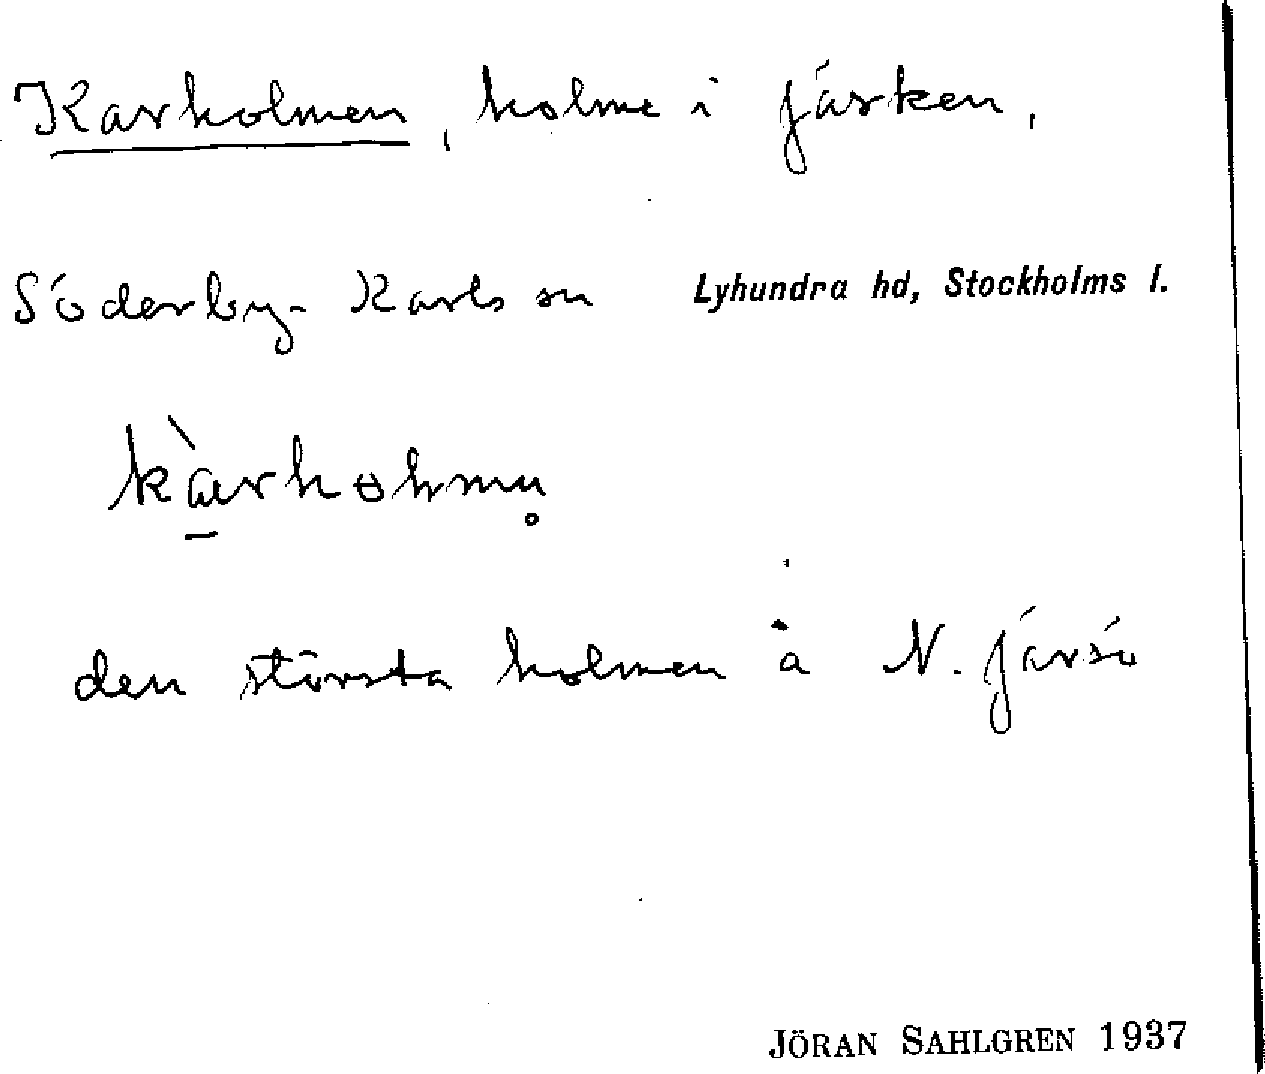 Karholmen, holme i järken,
Söderby-Karls sn Lyhundra hd, Stockholms l.
den största holmen å N. järsö
JÖRAN SAHLGREN 1937